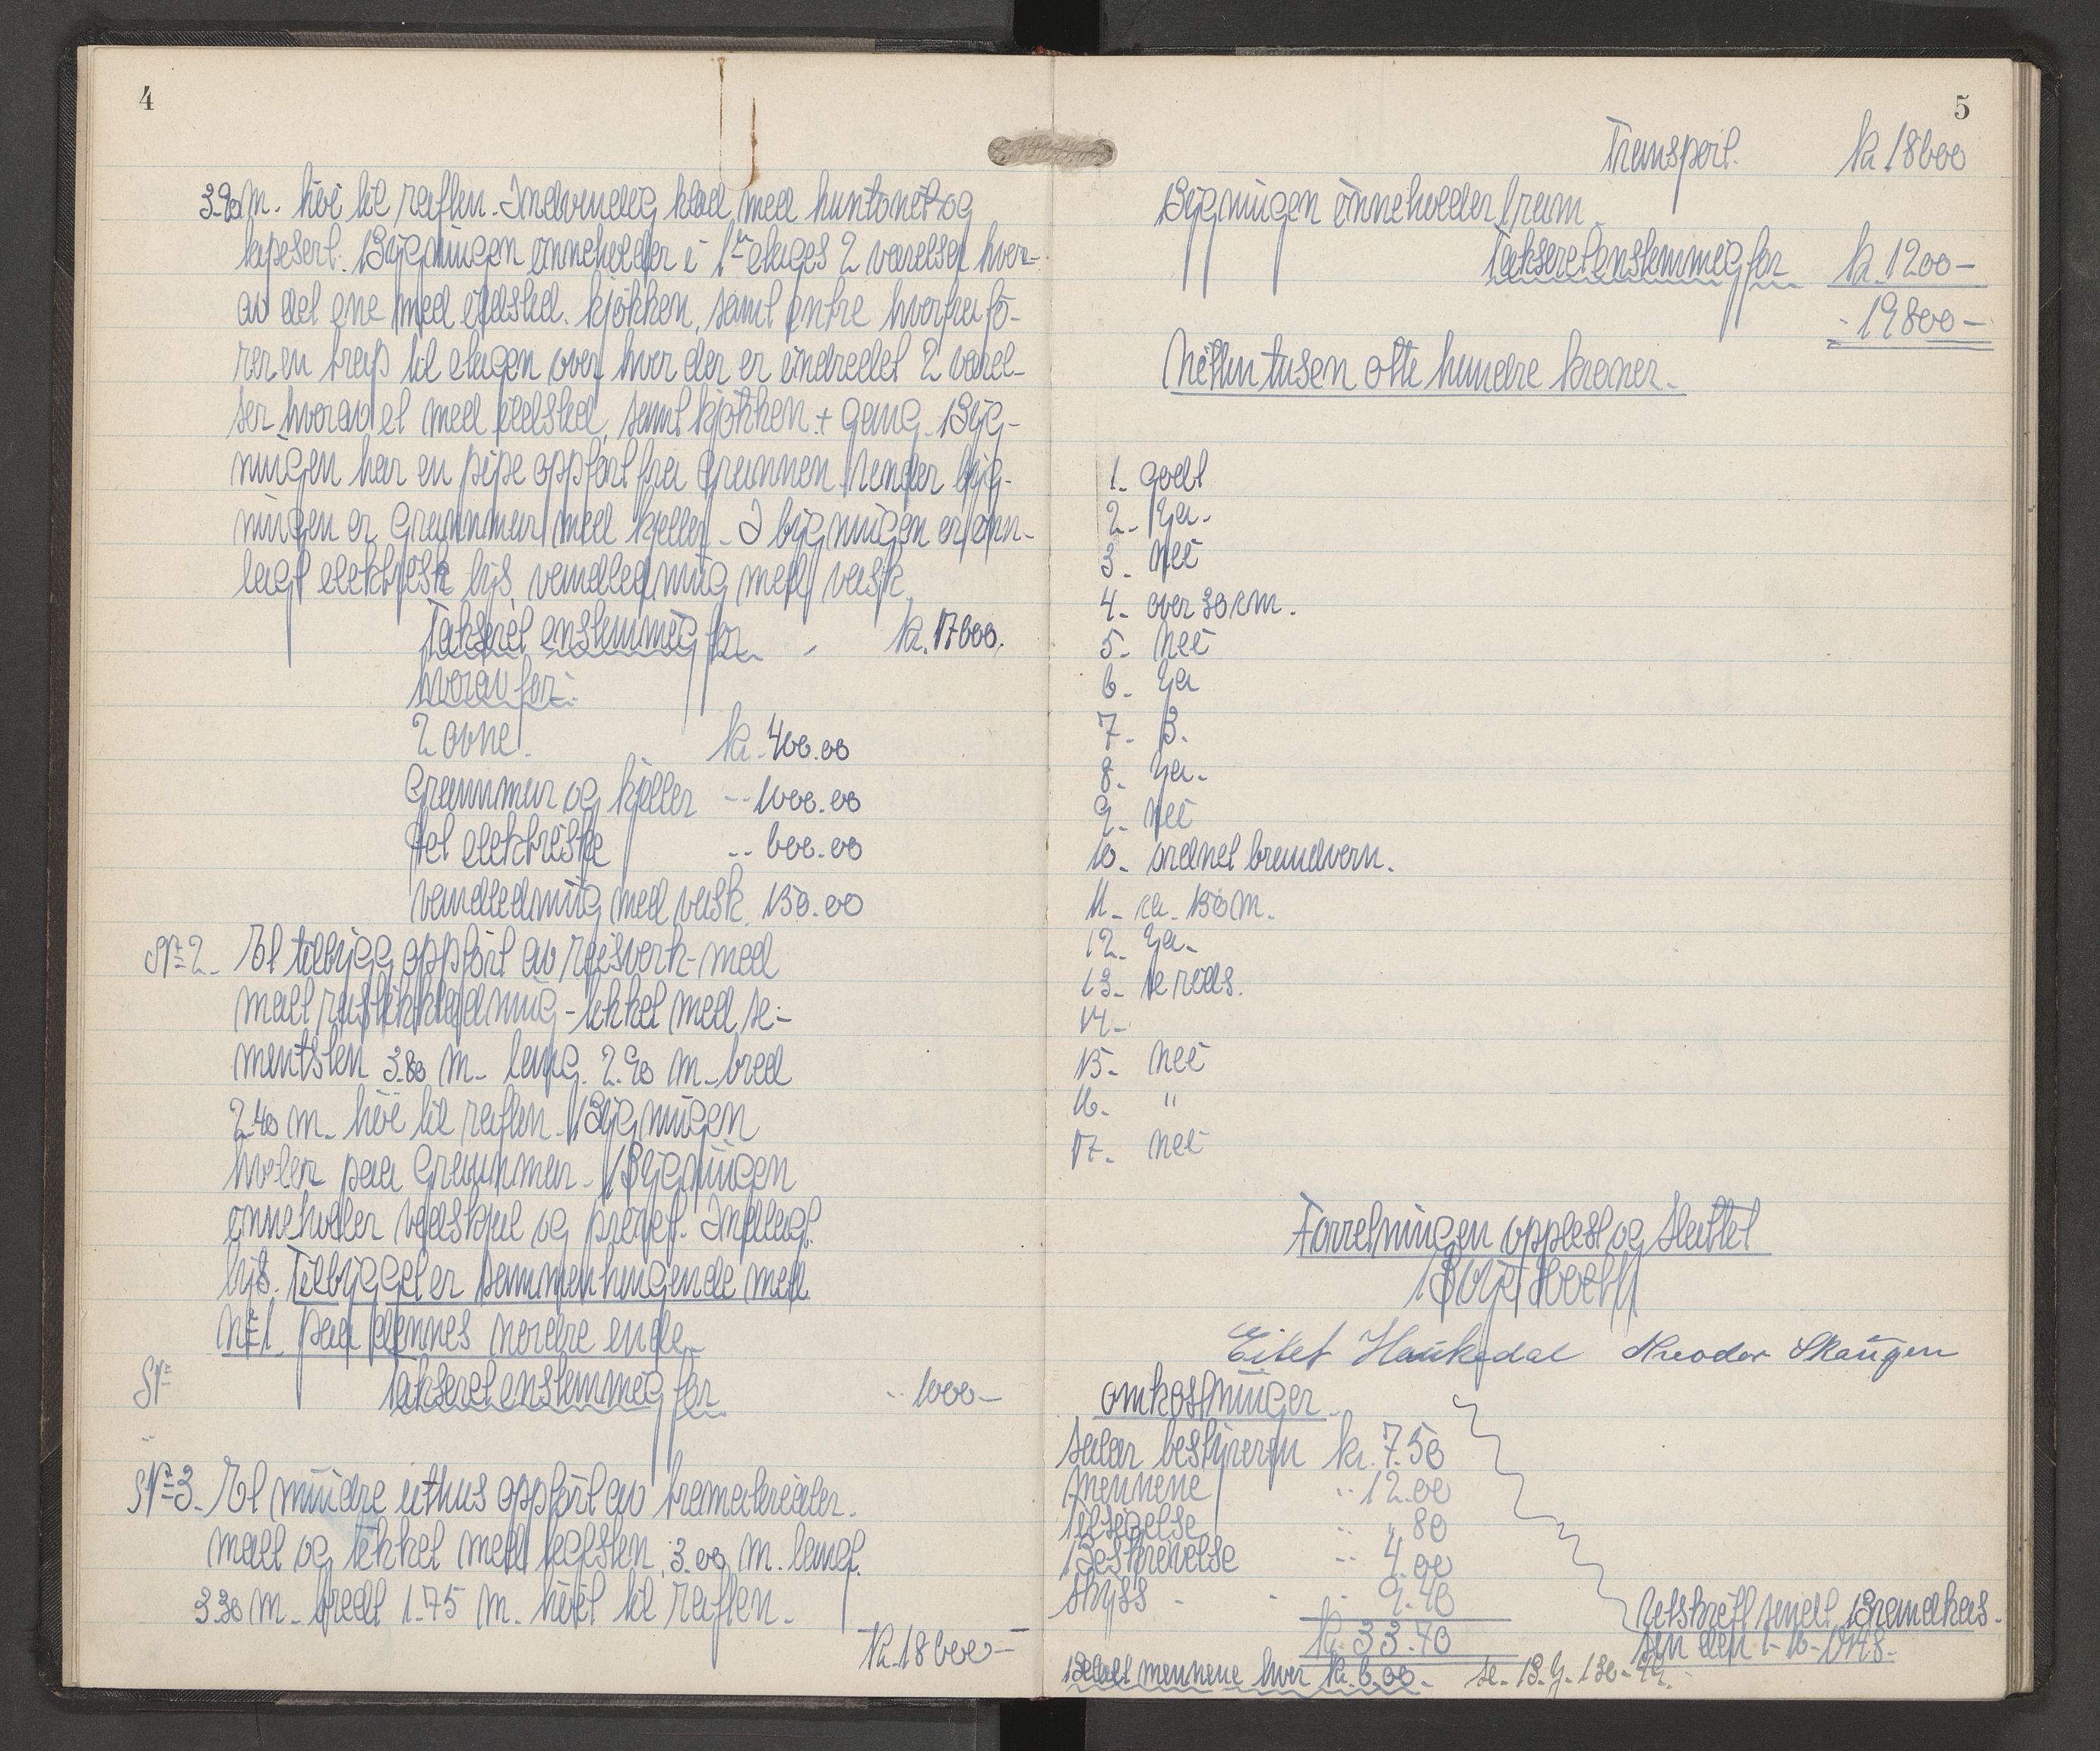 4
3.90 m. höi til raften. Indvendig klæd med huntonet og
tapesert. Bygningen inneholder i 1ste etages 2 værelser hvor-
av det ene med ildsted. kjökken, samt entre hvorfra fö-
rer en trap til etagen over hvor der er indredet 2 værel-
ser hvorav et med ildsted, samt kjökken + gang. Byg-
ningen har en pipe opfört fra grunnen. Under byg-
ningen er Grunnmur med kjeller. I bygningen er inn-
lagt elektrisk lys, vandledning med vask.
Taksert enstemmig for kr. 17000.
hvorav for:
2 ovne. kr. 400.00
Grunnmur og kjeller " 1000.00
det elektriske " 600.00
vandledning med vask 150.00
No 2. Et tilbygg oppfört av reisverk med
malt rustikkledning - tekket med se-
mentsten 3.80 m. lang. 2.90 m. bred
2.40 m. höi til raften. Bygningen
hviler paa Grunnmur. Bygningen
inneholder vedskjul og privet. Indlagt
lys. Tilbygget er sammenhengende med
No 1. paa dennes nordre ende.
No Taksert enstemmig for " 1000 -
No 3. Et mindre uthus oppfört av trematerialer.
malt og tekket med teglsten, 3.00 m. langt.
3.30 m. bredt 1.75 m. höit til raften.
Kr. 18 600 -
5
Transport. kr. 18600
Bygningen inneholder 1 rum.
Taksert enstemmig for kr. 1200 -
19800 -
Nitten tusen otte hundre kroner.
1. godt
2. Ja.
3. nei
4. over 30 cm.
5. Nei
6. Ja
7. 3.
8. Ja.
9. nei
10. ordnet brandvern.
11. ca. 150 m.
12. Ja.
13. se reds.
14.
15. Nei
16. "
17. nei
Forretningen opplest og sluttet
Eilef Haukedal Theodor Skaugen
Omkostninger.
Salær bestyreren kr. 7.50
mennene " 12.00
Tilsigelse " " 80
Beskrivelse " 4.00
Skyss - " 9.40
Kr. 33.70
Utskrift sendt Brandkas-
sen den 1-10-1948.
Betalt mennene hver kr. 6.00. se. B. J. 130-49.